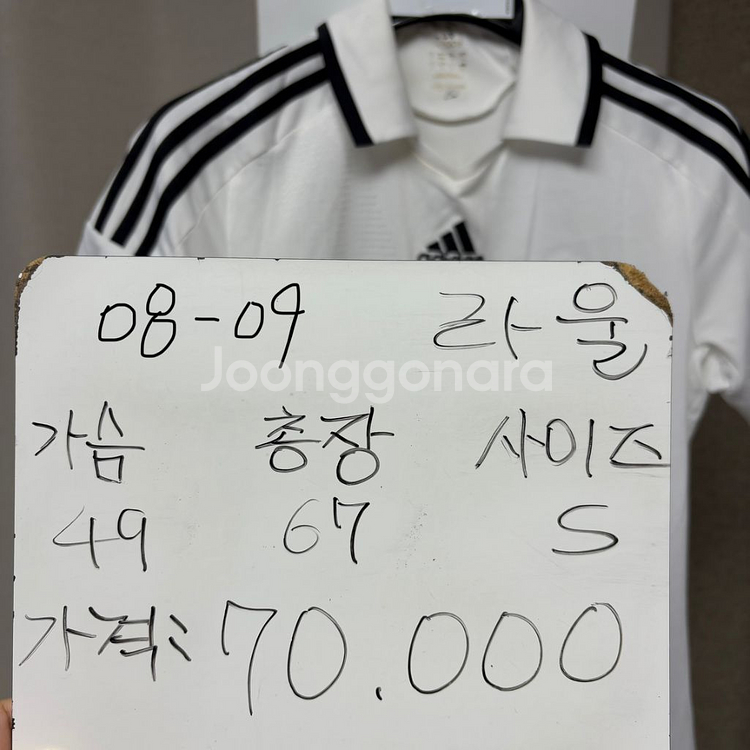 adidas
08-09 라울
Joonggonara
가슴 총장 사이즈
49 67 S
가격: 70.000